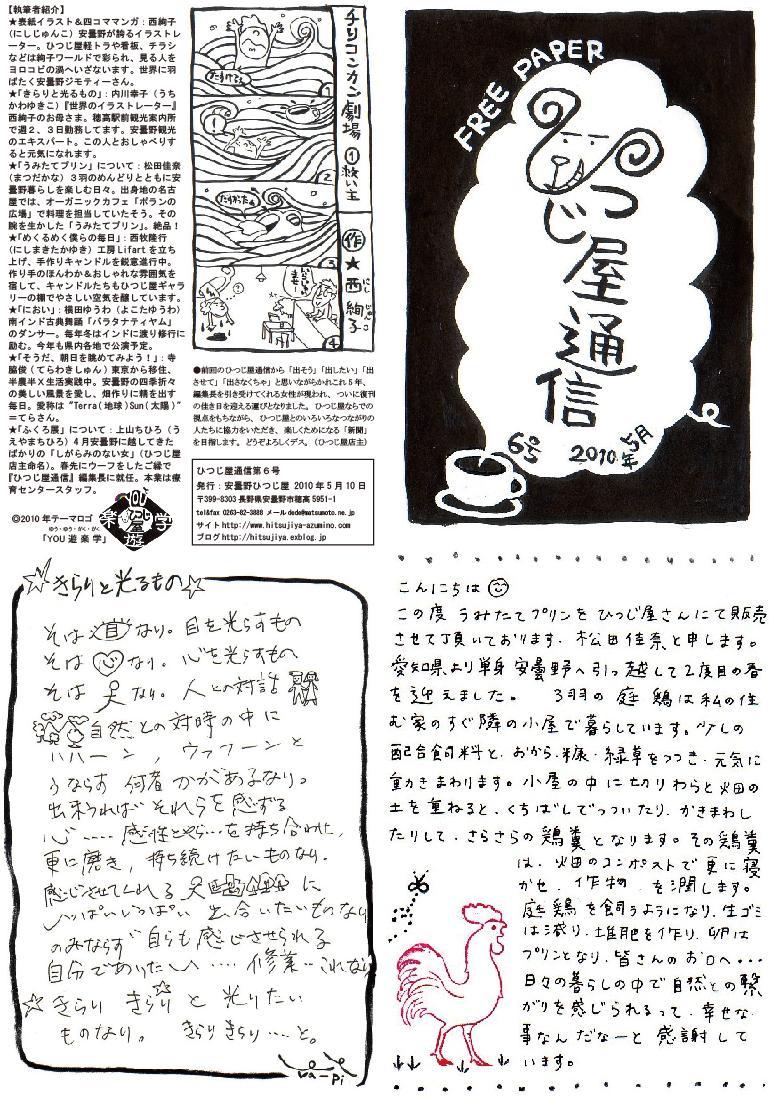 【執筆者紹介】
★表紙イラスト＆四コママンガ：西絢子
（にしじゅんこ）安曇野が誇るイラストレ
ーター。ひつじ屋軽トラや看板、チラシ
などは絢子ワールドで彩られ、見る人を
ヨロコビの渦へいざないます。世界に羽
ばたく安曇野ジモティーさん。
★「きらりと光るもの」：内川幸子（うち
かわゆきこ）『世界のイラストレーター』
西絢子のお母さま。穂高駅前観光案内所
で週２、３日勤務してます。安曇野観光
のエキスパート。この人とおしゃべりす
ると元気になれます。
★「うみたてプリン」について：松田佳奈
（まつだかな）３羽のめんどりとともに安
曇野暮らしを楽しむ日々。出身地の名古
屋では、オーガニックカフェ「ボランの
広場」で料理を担当していたそう。その
腕を生かした「うみたてプリン」。絶品！
★「めくるめく僕らの毎日」：西牧隆行
（にしまきたかゆき）工房Lifartを立ち
上げ、手作りキャンドルを鋭意進行中。
作り手のほんわか＆おしゃれな雰囲気を
宿して、キャンドルたちもひつじ屋ギャラ
リーの棚でやさしい空気を醸しています。
★「におい」：横田ゆうわ（よこたゆうわ）
南インド古典舞踊「バラタナティヤム」
のダンサー。毎年冬はインドに渡り修行に
励む。今年も県内各地で公演予定。
★「そうだ、朝日を眺めてみよう！」：寺
脇俊（てらわきしゅん）東京から移住、
半農半×生活実践中。安曇野の四季折々
の美しい風景を愛し、畑作りに精を出す
毎日。愛称は“Terra(地球)Sun(太陽)”
＝てらさん。
★「ふくろ展」について：上山ちひろ（う
えやまちひろ）４月安曇野に越してきた
ばかりの「しがらみのない女」（ひつじ屋
店主命名）。春先にウーフをしたご縁で
『ひつじ屋通信』編集長に就任。本業は療
育センタースタッフ。
©2010年テーマロゴ
ゆう・ゆう・がく・がく
「YOU遊楽学」
YOU
楽 屋 学
遊
チリコンカン劇場 ①救い主
作★西絢子
にし じゅんこ
たすけてぇ
1
2
たすかったぁ
3
いらっしゃいませー
4
●前回のひつじ屋通信から「出そう」「出したい」「出
させて」「出さなくちゃ」と思いながらかれこれ５年、
編集長を引き受けてくれる女性が現われ、ついに復刊
の佳き日を迎える運びとなりました。ひつじ屋ならでの
視点をもちながら、ひつじ屋とのいろいろなつながりの
人たちに協力をいただき、楽しくためになる「新聞」
を目指します。どうぞよろしくデス。（ひつじ屋店主）
ひつじ屋通信第６号
発行：安曇野ひつじ屋 2010年5月10日
〒399-8303 長野県安曇野市穂高5951-1
tel&fax 0263-82-3888 メール dede@matsumoto.ne.jp
サイト http://www.hitsujiya-azumino.com
ブログ http://hitsujiya.exblog.jp
FREE PAPER
ひつじ屋通信
6号 2010年5月
☆きらりと光るもの☆
そは 直 なり。目を光らすもの
そは なり。心を光らすもの
そは なり。人との対話
自然との対峙の中に
ハハーン，ウフフーンと
うならす 何者かがあるなり。
出来うれば それらを感ずる
心…… 感性とやら…を持ち合わせ，
更に磨き，持ち続けたいものなり。
感じさせてくれる に
いっぱいいっぱい 出合いたいものなり
のみならず 自らも感じさせられる
自分でありたし…… 修業…これなり
☆きらり きらり☆と 光りたい
ものなり。 きらりきらり……と。
va-pi
こんにちは
この度 うみたてプリンを ひつじ屋さんにて販売
させて頂いております、松田佳奈と申します。
愛知県より単身 安曇野へ引っ越して２度目の春
を迎えました。 ３羽の庭鶏は私の住
む家のすぐ隣の小屋で暮らしています。少しの
配合飼料と、おから・糠・緑草をつつき、元気に
動きまわります。小屋の中に切りわらと畑の
土を重ねると、くちばしでつついたり、かきまわし
たりして、さらさらの鶏糞となります。その鶏糞
は、畑のコンポストで更に寝
かせ、作物を潤します。
庭鶏を飼うようになり、生ゴミ
は減り、堆肥を作り、卵は
プリンとなり、皆さんのお口へ・・・
日々の暮らしの中で自然との繋
がりを感じられるって、幸せな
事なんだなーと感謝して
います。